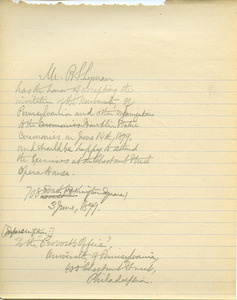 Mr. B. Lyman
has the honor of accepting the
invitation of the University of
Pennsylvania and other organizations
to the Ceremonies
Ceremonies on June 14th, 1899,
and should be happy to attend
the Exercises at the Chestnut Street
Opera House.
708 Washington Square;
3 June, 1899.
To the Provost's Office,
University of Pennsylvania,
400 Chestnut Street,
Philadelphia